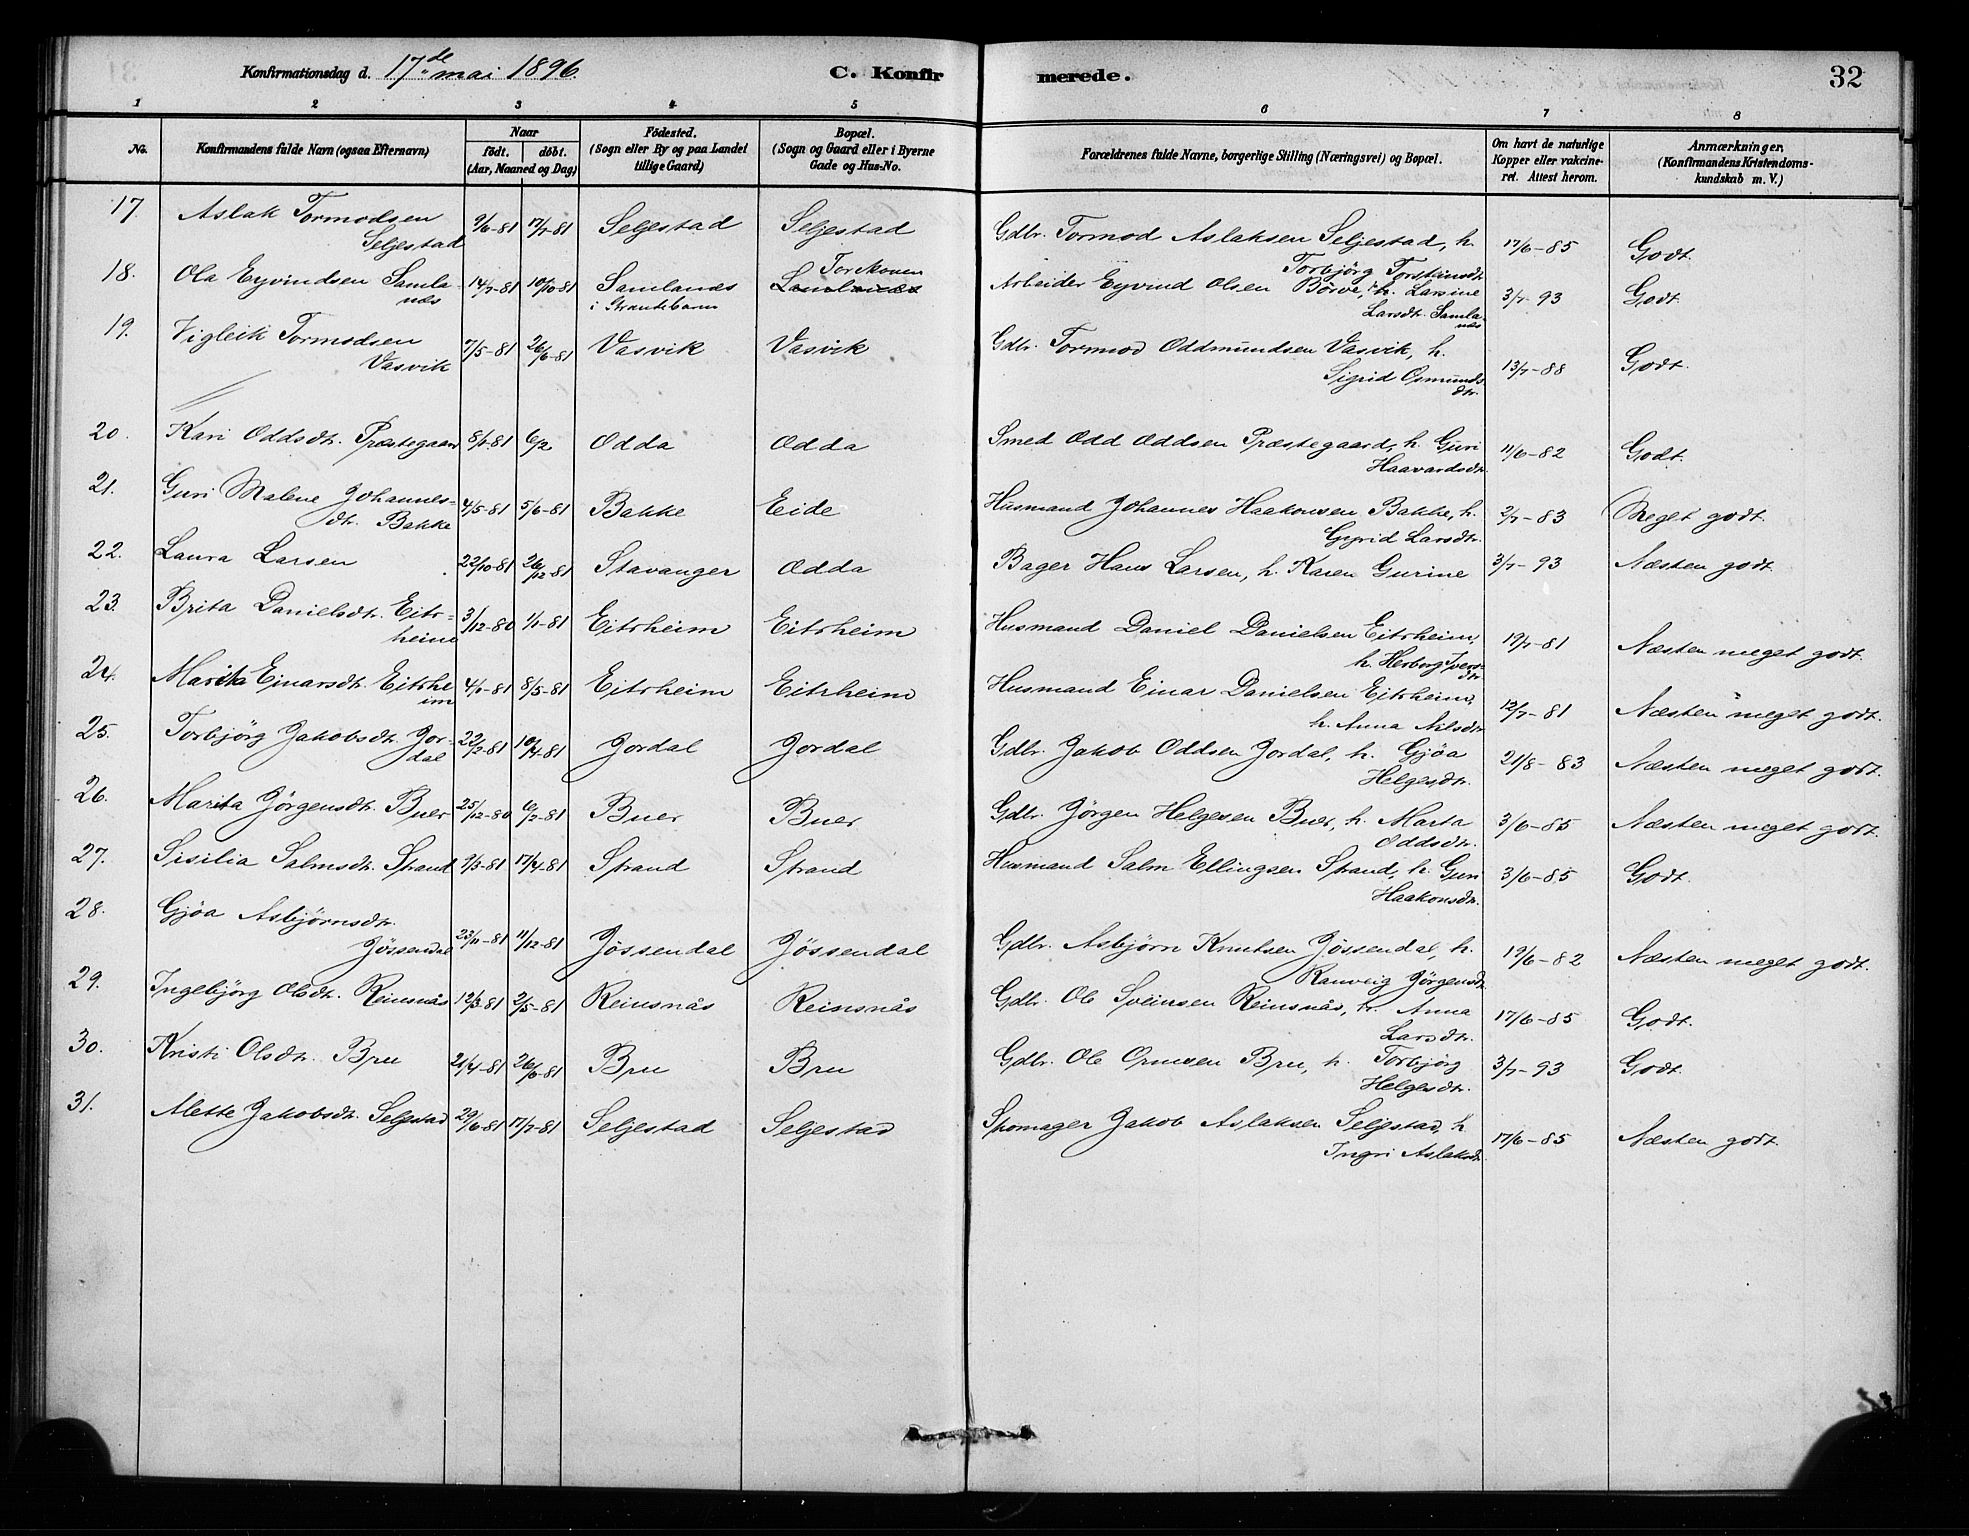 Konfirmationsdag d. 17de mai 1896. C. Konfirmerede. 32
1 2 3 4 5 6 7 8
No. Konfirmandens fulde Navn (ogsaa Efternavn) Naar født. døbt. (Aar, Maaned og Dag) Fødested. (Sogn eller By og paa Landet tillige Gaard) Bopæl. (Sogn og Gaard eller i Byerne Gade og Hus-No. Forældrenes fulde Navne, borgerlige Stilling (Næringsvei) og Bopæl. Om havt de naturlige Kopper eller vakcineret. Attest herom. Anmærkninger, (Konfirmandens Kristendomskundskab m. V.)
17. Aslak Tormodsen Seljestad 9/6-81 17/7-81 Seljestad Seljestad Gdbr. Tormod Aslaksen Seljestad, h. Torbjörg Torsteinsdtr. 17/6-85 Godt.
18. Ola Eyvindsen Samlanæs 14/7-81 10/10-81 Samlanæs i Strandebarm Samlanæs Arbeider Eyvind Olsen Börve, h. Larsine Larsdtr. Samlanæs 3/7-93 Godt
19. Vigleik Tormodsen Vasvik 7/5-81 26/6-81 Vasvik Vasvik Gdbr. Tormod Oddmundsen Vasvik, h. Sigrid Osmundsdtr. 13/7-88 Godt.
20. Kari Oddsdtr. Præstegaard 8/1-81 6/2 Odda Odda Smed Odd Oddsen Præstegaard, h. Guri Haavardsdtr. 11/6-82 Godt.
21. Guri Malene Johannesdtr. Bakke 4/5-81 5/6-81 Bakke Eide Husmand Johannes Haakonsen Bakke, h. Gyrid Larsdtr. 2/7-83 Meget godt.
22. Laura Larsen 22/10-81 26/12-81 Stavanger Odda Bager Hans Larsen, h. Karen Gurine 3/7-93 Næsten godt.
23. Brita Danielsdtr. Eitrheim 3/12-80 1/1-81 Eitrheim Eitrheim Husmand Daniel Danielsen Eitrheim, h. Herborg Iversdtr. 19/7-81 Næsten meget godt.
24. Marita Einarsdtr. Eitrheim 4/1-81 8/5-81 Eitrheim Eitrheim Husmand Einar Danielsen Eitrheim, h. Anna Nilsdtr. 12/7-81 Næsten meget godt.
25. Torbjörg Jakobsdtr. Jordal 22/2-81 10/4-81 Jordal Jordal Gdbr. Jakob Oddsen Jordal, h. Gjøa Helgesdtr. 21/8-83 Næsten meget godt.
26. Marita Jörgensdtr. Buer 25/12-80 6/2-81 Buer Buer Gdbr. Jörgen Helgesen Buer, h. Marta Oddsdtr. 3/6-85 Næsten meget godt.
27. Sisilia Salmsdtr. Strand 9/3-81 17/4-81 Strand Strand Husmand Salm Ellingsen Strand, h. Guri Haakonsdtr. 3/6-85 Godt.
28. Gjøa Asbjørnsdtr. Jøssendal 23/11-81 11/12-81 Jøssendal Jøssendal Gdbr. Asbjørn Knutsen Jøssendal, h. Ranveig Jörgensdtr. 19/6-82 Næsten meget godt.
29. Ingebjörg Olsdtr. Reinsnås 12/3-81 2/5-81 Reinsnås Reinsnås Gdbr. Ole Sveinsen Reinsnås, h. Anna Larsdtr. 17/6-85 Godt.
30. Kristi Olsdtr. Bru 21/4-81 26/6-81 Bru Bru Gdbr. Ole Ormsen Bru, h. Torbjörg Helgesdtr. 3/7-93 Godt.
31. Alette Jakobsdtr. Seljestad 29/6-81 17/7-81 Seljestad Seljestad Jakob Aslaksen Seljestad, h. Ingri Aslaksdtr. 17/6-85 Næsten godt.